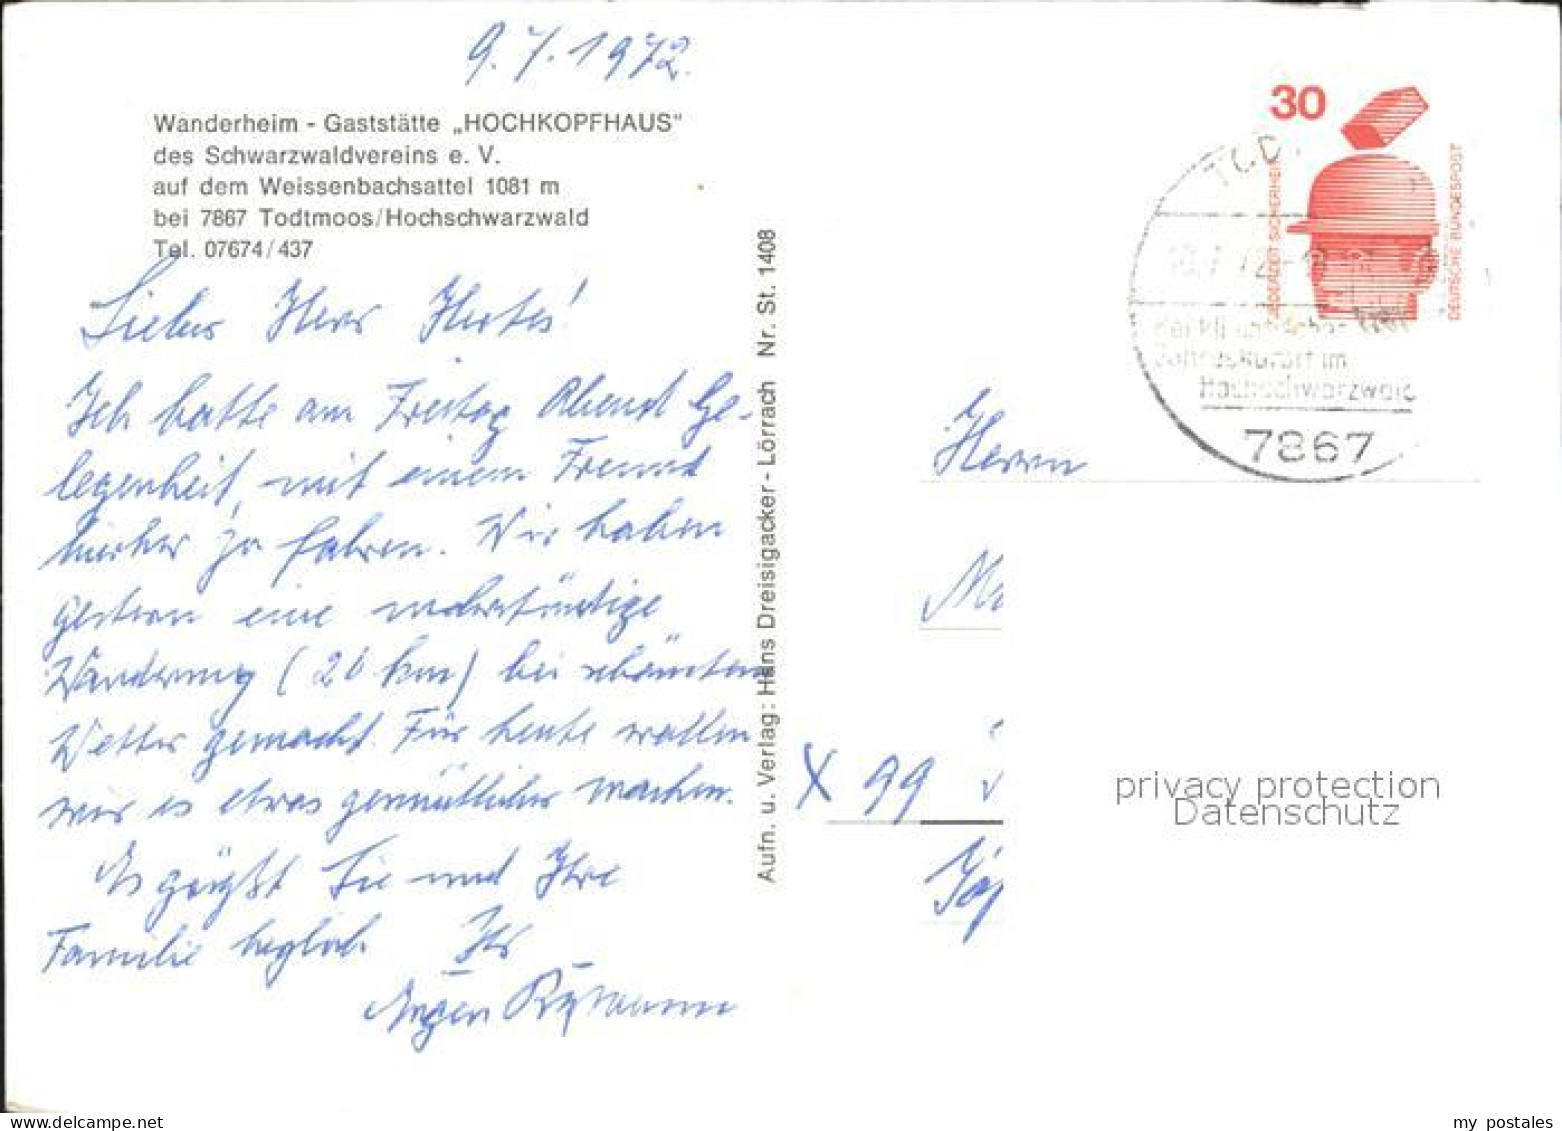 9.7.1972.
Wanderheim - Gaststätte „HOCHKOPFHAUS"
des Schwarzwaldvereins e. V.
auf dem Weissenbachsattel 1081 m
bei 7867 Todtmoos/Hochschwarzwald
Tel. 07674/437
Lieber Herr
Ich hatte am Freitag Abend Ge-
legenheit, mit einem Freund
hierher zu fahren. Wir haben
gestern eine mehrstündige
Wanderung (20 km) bei schönstem
Wetter gemacht. Für heute wollen
wir es etwas gemütlicher machen.
Es grüßt Sie und Ihre
Familie herzlich Ihr
Aufn. u. Verlag: Hans Dreisigacker - Lörrach Nr. St. 1408
30
JEDERZEIT SICHERHEIT
DEUTSCHE BUNDESPOST
Hochschwarzwald
7867
Herrn
X 99
privacy protection
Datenschutz
my postales
www.delcampe.net